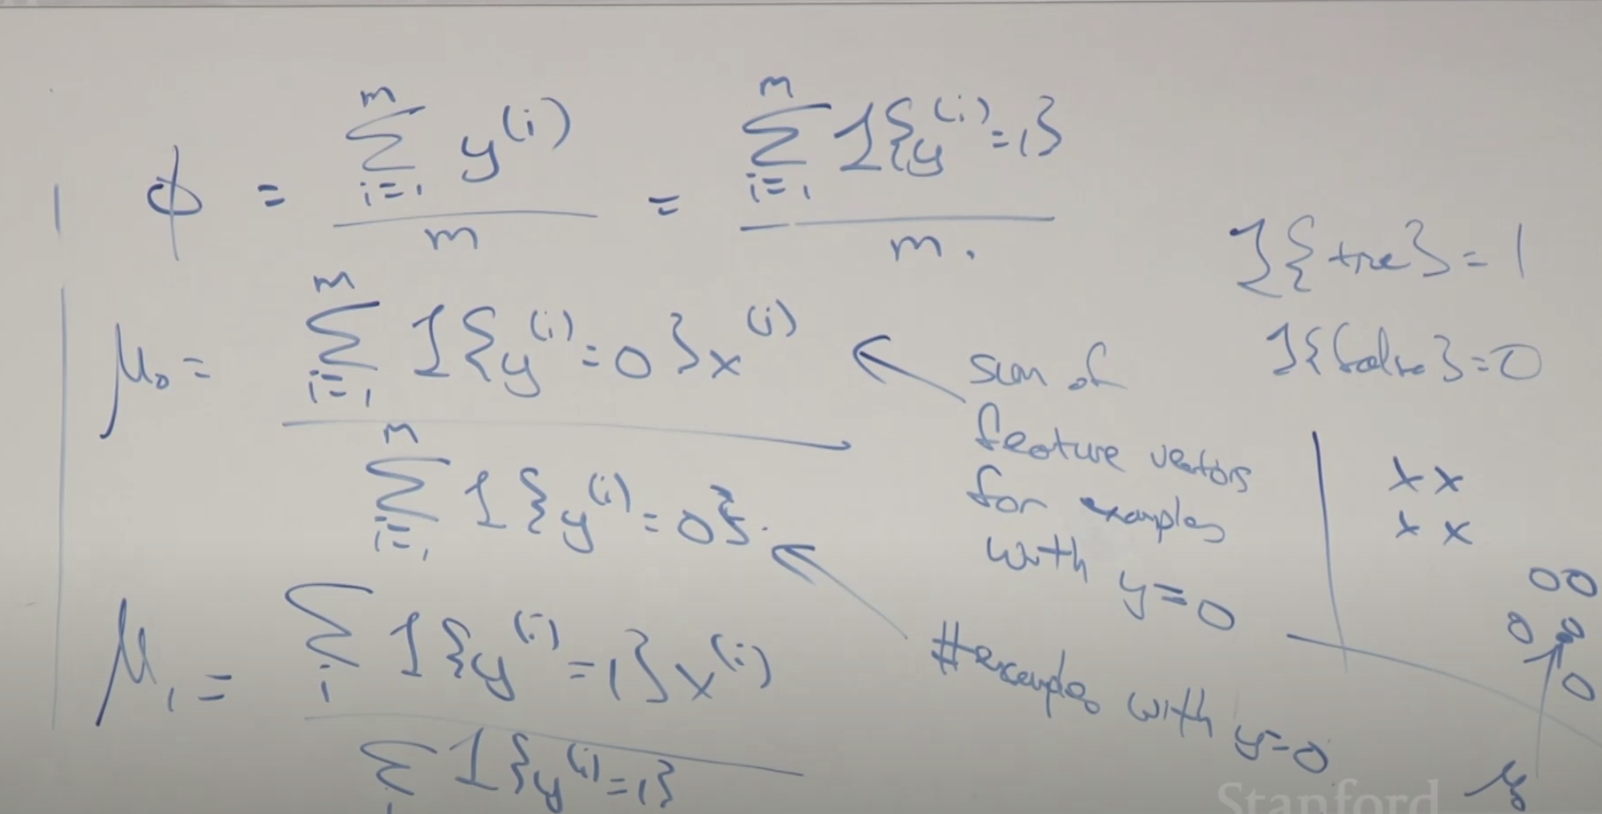 ϕ = ∑_{i=1}^{m} y^{(i)} / m = ∑_{i=1}^{m} 1{y^{(i)}=1} / m.
1{true}=1
1{false}=0
μ₀ = ∑_{i=1}^{m} 1{y^{(i)}=0}x^{(i)} / ∑_{i=1}^{m} 1{y^{(i)}=0}.
sum of
feature vectors
for examples
with y=0
#examples with y=0
μ₁ = ∑_{i} 1{y^{(i)}=1}x^{(i)} / ∑_{i} 1{y^{(i)}=1}
x x
x x
o o
o o
o
μ₀
Stanford